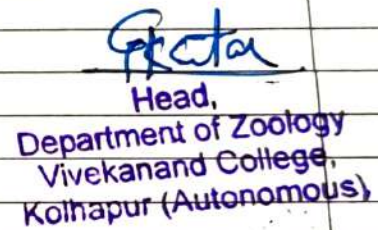 Head,
Department of Zoology
Vivekanand College,
Kolhapur (Autonomous)